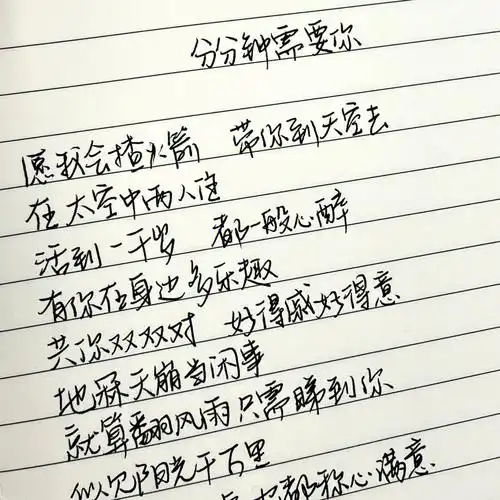 分分钟需要你
愿我会揸火箭 带你到天空去
在太空中两人住
活到一千岁 都一般心醉
有你在身边多乐趣
共你双双对 好得戚好得意
地冧天崩当闲事
就算翻风雨只需睇到你
似见阳光千百里
都称心满意